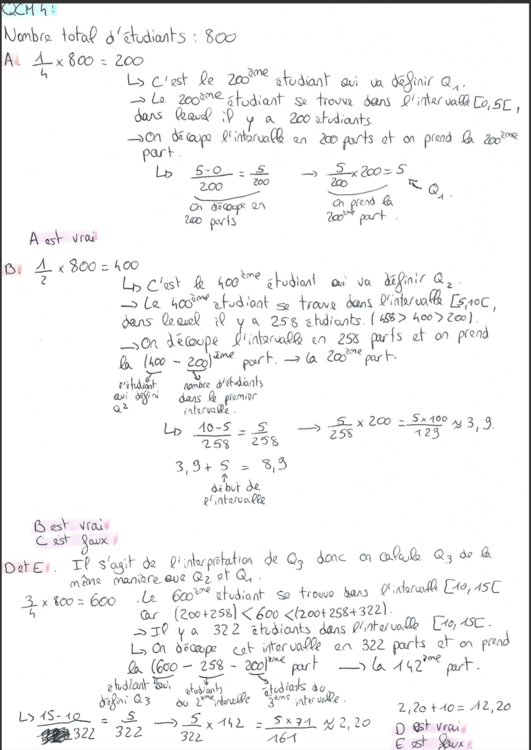 QCM 4 :
Nombre total d'étudiants : 800
A. 1/4 x 800 = 200
↳ C'est le 200ème étudiant qui va définir Q1.
→ Le 200ème étudiant se trouve dans l'intervalle [0,5[,
dans lequel il y a 200 étudiants.
→ On découpe l'intervalle en 200 parts et on prend la 200ème
part.
↳ 5-0/200 = 5/200 → 5/200 x 200 = 5 ← Q1.
On découpe en 200 parts
On prend la 200ème part.
A est vrai
B. 1/2 x 800 = 400
↳ C'est le 400ème étudiant qui va définir Q2.
→ Le 400ème étudiant se trouve dans l'intervalle [5,10[,
dans lequel il y a 258 étudiants. (458 > 400 > 200).
→ On découpe l'intervalle en 258 parts et on prend
la (400 - 200)ème part. → la 200ème part.
l'étudiant qui défini Q2
nombre d'étudiants dans le premier intervalle.
↳ 10-5/258 = 5/258 → 5/258 x 200 = 5 x 100/129 ≈ 3,9.
3,9 + 5 = 8,9
début de l'intervalle
B est vrai
C est faux
D et E. Il s'agit de l'interprétation de Q3 donc on calcule Q3 de la
même manière que Q2 et Q1.
3/4 x 800 = 600 . Le 600ème étudiant se trouve dans l'intervalle [10,15[
car (200+258) < 600 < (200+258+322).
→ Il y a 322 étudiants dans l'intervalle [10,15[.
↳ On découpe cet intervalle en 322 parts et on prend
la (600 - 258 - 200)ème part → la 142ème part.
étudiant qui défini Q3
étudiants du 2ème intervalle
étudiants du 3ème intervalle.
↳ 15-10/322 = 5/322 → 5/322 x 142 = 5 x 71/161 ≈ 2,20
2,20 + 10 = 12,20
D est vrai
E est faux